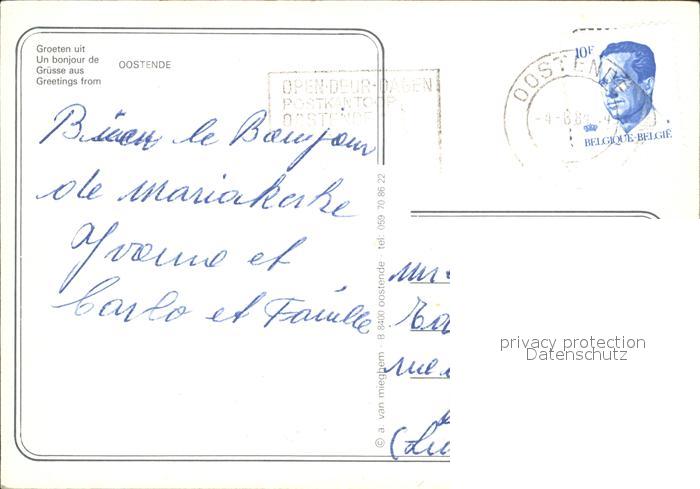 Groeten uit
Un bonjour de
Grüsse aus
Greetings from
OOSTENDE
OPEN-DEUR-DAGEN
POSTKANTOOR
OOSTENDE
OOSTENDE
10F
BELGIQUE-BELGIË
Bien le Bonjour
de Mariakerke
Yvonne et
Carlo et Famille
© a. van mieghem - B 8400 oostende - tel. 059 70 86 22
privacy protection
Datenschutz